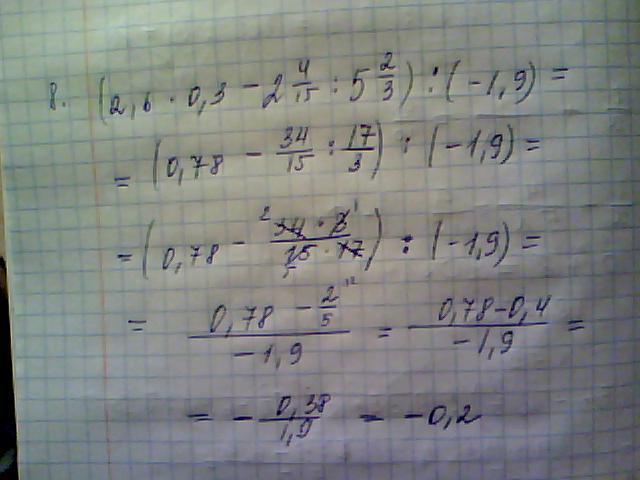 8. (2,6 · 0,3 − 2 4/15 : 5 2/3) : (−1,9) =
= (0,78 − 34/15 : 17/3) : (−1,9) =
= (0,78 − 34 · 3/15 · 17) : (−1,9) =
= 0,78 − 2/5/−1,9 = 0,78−0,4/−1,9 =
= − 0,38/1,9 = −0,2